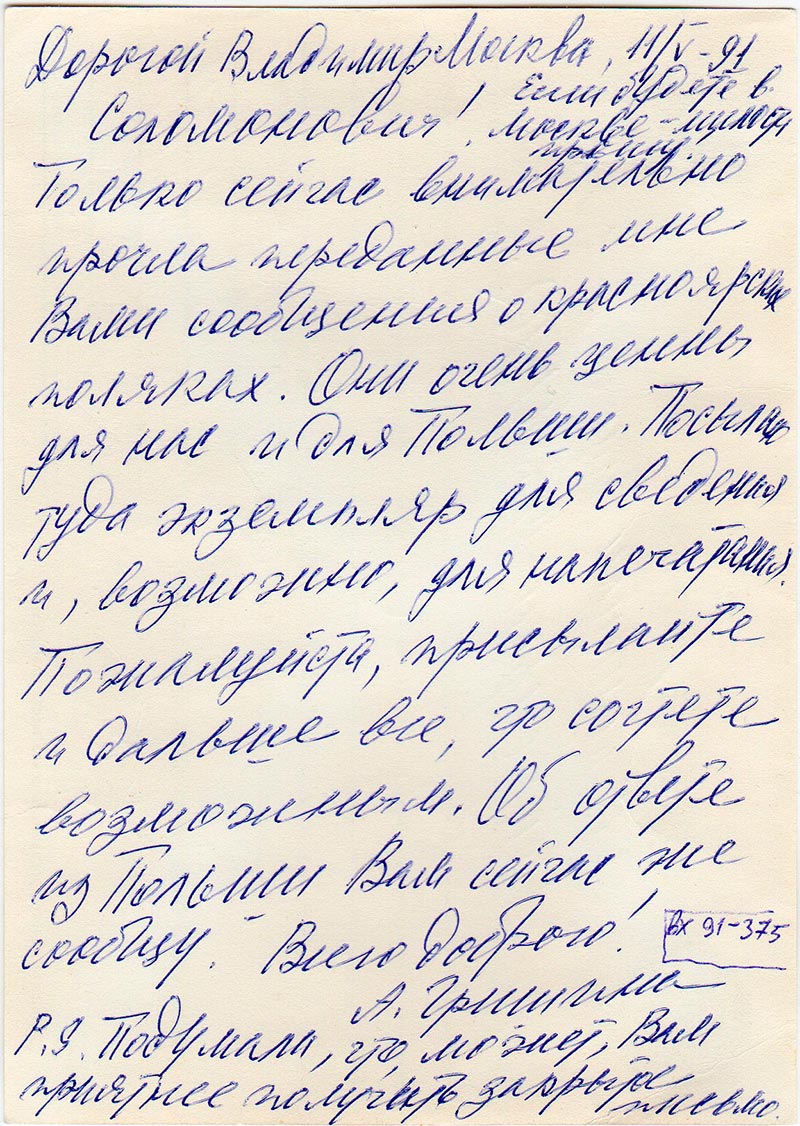 Дорогой Владимир Москва, 11/V-91
Соломонович! Если будете в
Москве - милости
прошу.
Только сейчас внимательно
прочла переданные мне
Вами сообщения о красноярских
поляках. Они очень ценны
для нас и для Польши. Посылаю
туда экземпляр для сведения
и, возможно, для напечатания.
Пожалуйста, присылайте
и дальше все, что сочтете
возможным. Об ответе
из Польши Вам сейчас же
сообщу. Всего доброго!
вх 91-375
А. Гришина
P.S. Подумала, что, может, Вам
приятнее получить закрытое
письмо.